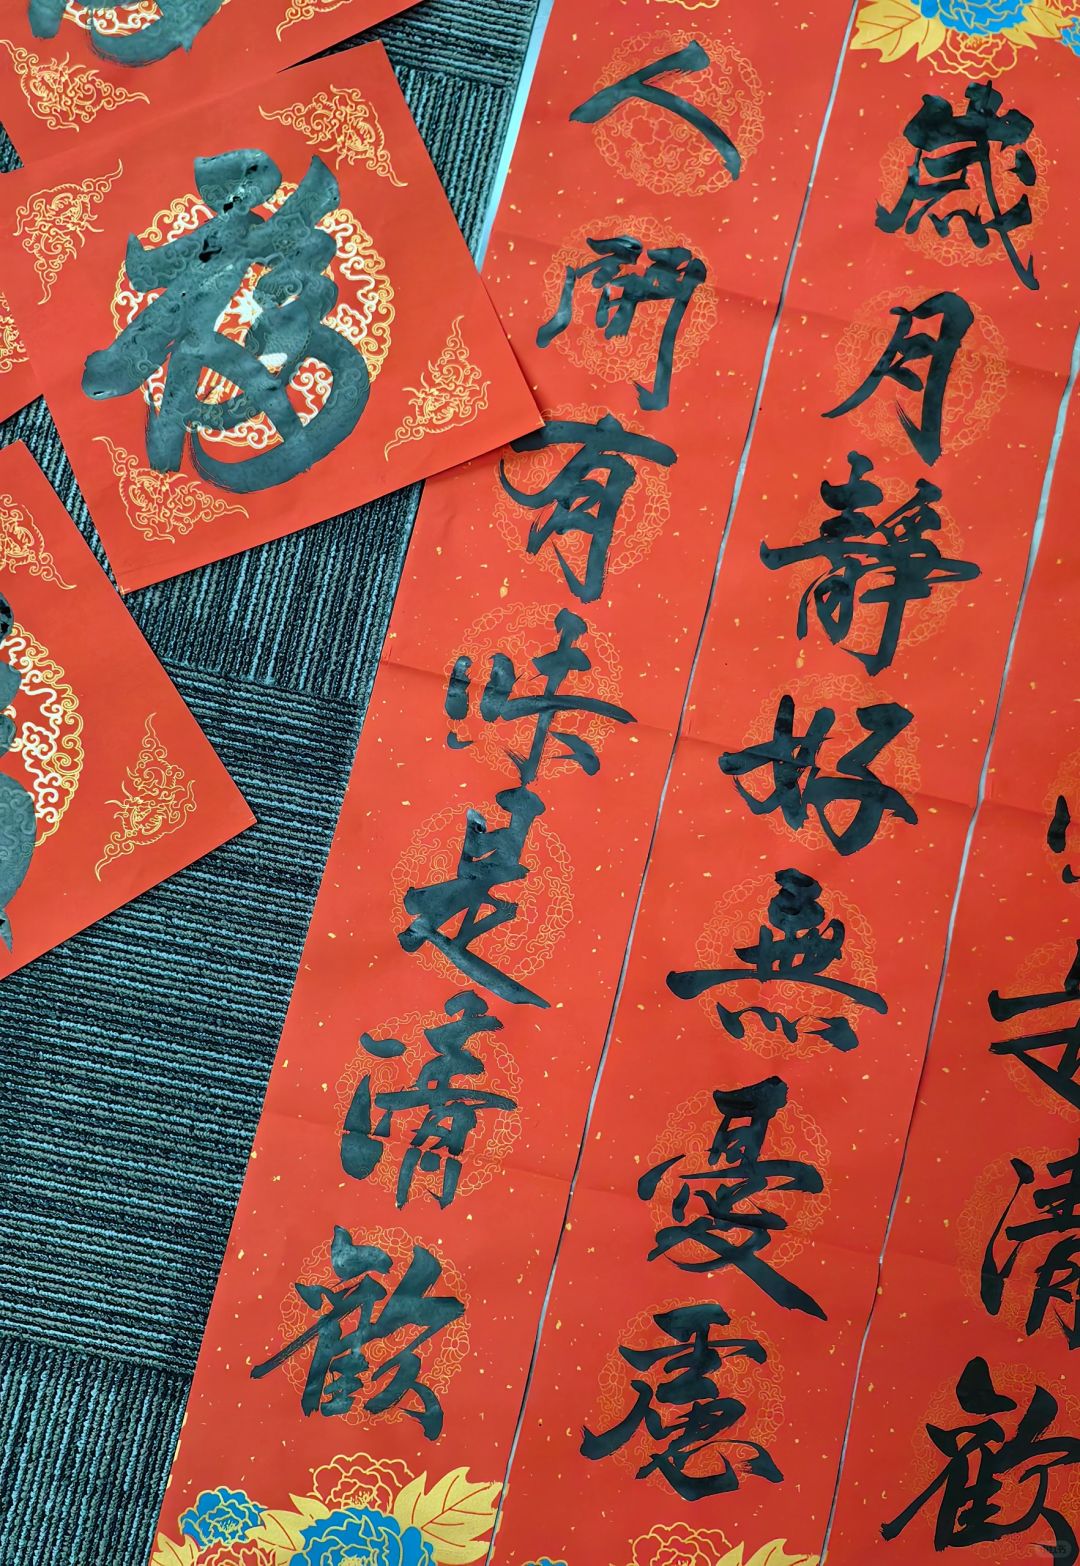 清歡
歲月靜好無憂慮
人間有味是清歡
福